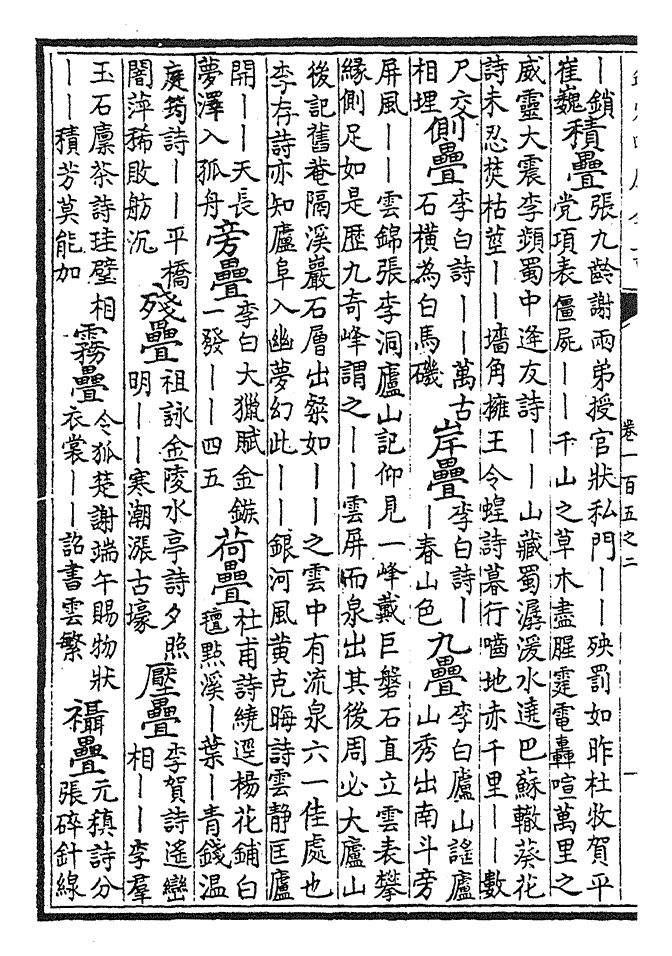 卷一百五之二
一
丨鎖
崔巍
積疊
張九齡謝兩弟授官狀私門丨丨殃罰如昨杜牧賀平
党項表僵屍丨丨千山之草木盡腥霆電轟喧萬里之
威靈大震李頻蜀中逢友詩丨丨山藏蜀潺湲水遶巴蘇轍葵花
詩未忍焚枯莖丨丨墻角擁王令蝗詩暮行嚙地赤千里丨丨數
尺交
相埋
側疊
李白詩丨丨萬古
石橫為白馬磯
岸疊
李白詩丨
丨春山色
九疊
李白廬山謠廬
山秀出南斗旁
屏風丨丨雲錦張李洞廬山記仰見一峰戴巨磐石直立雲表攀
緣側足如是歷九奇峰謂之丨丨雲屏而泉出其後周必大廬山
後記舊菴隔溪巖石層出粲如丨丨之雲中有流泉六一佳處也
李存詩亦知廬阜入幽夢幻此丨丨銀河風黃克晦詩雲靜匡廬
開丨丨天長
夢澤入孤舟
旁疊
李白大獵賦金鏃
一發丨丨四五
荷疊
杜甫詩繞逕楊花鋪白
氊點溪丨葉丨青錢温
庭筠詩丨丨平橋
闇萍稀敗舫沉
殘疊
祖詠金陵水亭詩夕照
明丨丨寒潮漲古壕
壓疊
李賀詩遙巒
相丨丨李羣
玉石廪茶詩珪璧相
丨丨積芳莫能加
霧疊
令狐楚謝端午賜物狀
衣裳丨丨詔書雲繁
襵疊
元稹詩分
張碎針線